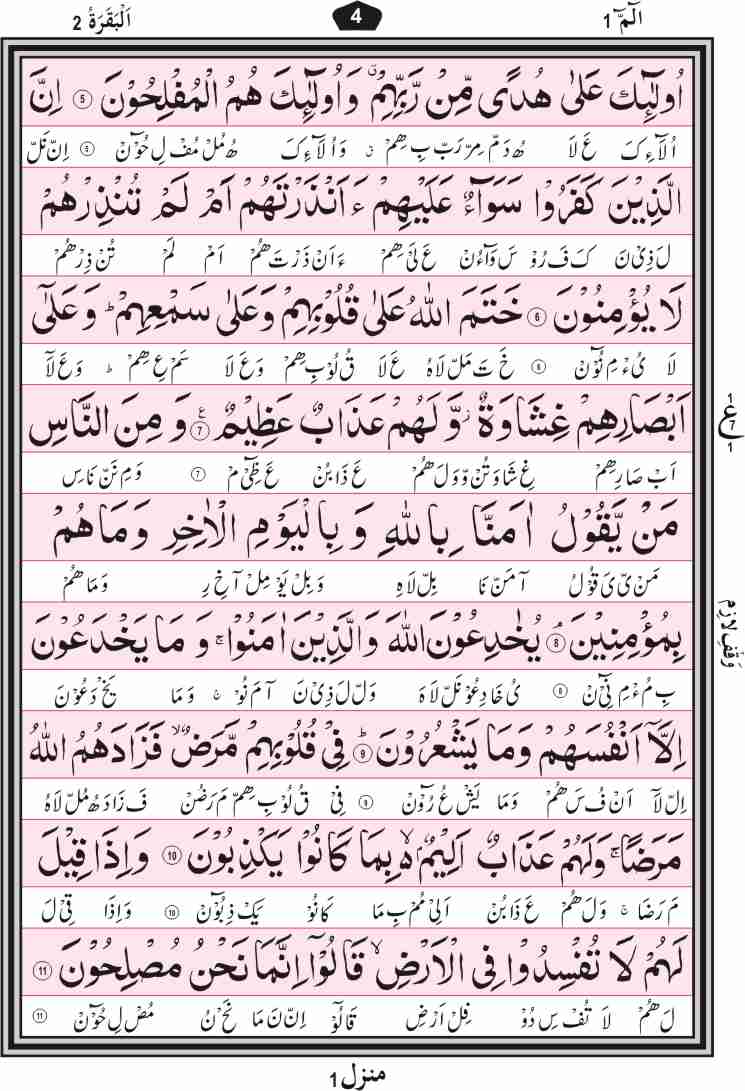 الٓمّٓ 1
4
اَلْبَقَرَة 2
اُولٰٓئِكَ عَلٰى هُدًى مِّنْ رَّبِّهِمْ ۙ وَاُولٰٓئِكَ هُمُ الْمُفْلِحُوْنَ ۝5 اِنَّ
اُلَآءِكَ عَ لَا هُ دَمّ مِرّ رَبّ بِ هِمْ ۙ وَ اُلَآءِكَ هُ مُلْ مُفْ لِ حُوْٓنْ ۝5 اِنّ نَلّ
الَّذِيْنَ كَفَرُوْا سَوَآءٌ عَلَيْهِمْ ءَاَنْذَرْتَهُمْ اَمْ لَمْ تُنْذِرْهُمْ
لَ ذِيْ نَ كَ فَ رُوْ سَ وَآءُنْ عَ لَىْ هِمْ ءَ اَنْ ذَرْ تَ هُمْ اَمْ لَمْ تُنْ ذِرْ هُمْ
لَا يُؤْمِنُوْنَ ۝6 خَتَمَ اللّٰهُ عَلٰى قُلُوْبِهِمْ وَعَلٰى سَمْعِهِمْ ؕ وَعَلٰٓى
لَا يُءْ مِ نُوْٓنْ ۝6 خَ تَ مَلّ لَاهُ عَ لَا قُ لُوْبِ هِمْ وَ عَ لَا سَمْ عِ هِمْ ؕ وَ عَ لَآ
اَبْصَارِهِمْ غِشَاوَةٌ ۫ وَّلَهُمْ عَذَابٌ عَظِيْمٌ ۝7 ع وَمِنَ النَّاسِ
اَبْ صَارِ هِمْ غِ شَاوَ تُنْ وّوَ لَ هُمْ عَ ذَابُنْ عَ ظِىْٓ مْ ۝7 وَ مِ نَنّ نَاسِ
مَنْ يَّقُوْلُ اٰمَنَّا بِاللّٰهِ وَبِالْيَوْمِ الْاٰخِرِ وَمَاهُمْ
مَنْ يّ ىَ قُوْلُ آ مَنْ نَا بِلّ لَاهِ وَ بِلْ يَوْ مِلْ آ خِ رِ وَ مَا هُمْ
بِمُؤْمِنِيْنَ ۝8 ۘ يُخٰدِعُوْنَ اللّٰهَ وَالَّذِيْنَ اٰمَنُوْا ۚ وَمَا يَخْدَعُوْنَ
بِ مُءْ مِ نِىْٓ نْ ۝8 ىُ خَادِ عُوْ نَلّ لَاهَ وَلّ لَ ذِىْ نَ آ مَ نُوْ ۚ وَ مَا يَخْ دَعُوْ نَ
اِلَّآ اَنْفُسَهُمْ وَمَا يَشْعُرُوْنَ ۝9 ؕ فِىْ قُلُوْبِهِمْ مَّرَضٌ ۙ فَزَادَهُمُ اللّٰهُ
اِلّ لَآ اَنْ فُ سَ هُمْ وَ مَا يَشْ عُ رُوْٓنْ ۝9 فِىْ قُ لُوْبِ هِمّ مَ رَضُنْ فَ زَادَ هُ مُلّ لَاهُ
مَرَضًا ۚ وَلَهُمْ عَذَابٌ اَلِيْمٌ ۢ ۙ بِمَا كَانُوْا يَكْذِبُوْنَ ۝10 وَاِذَا قِيْلَ
مَ رَضَا ۚ وَ لَ هُمْ عَ ذَابُنْ اَلِىْ مُمْ بِ مَا كَانُوْ يَكْ ذِ بُوْٓنْ ۝10 وَ اِذَا قِىْ لَ
لَهُمْ لَا تُفْسِدُوْا فِى الْاَرْضِ ۙ قَالُوْٓا اِنَّمَا نَحْنُ مُصْلِحُوْنَ ۝11
لَ هُمْ لَا تُفْ سِ دُوْ فِلْ اَرْضِ قَالُوْٓ اِنْ نَ مَا نَحْ نُ مُصْ لِ حُوْٓنْ ۝11
ع
وقف لازم
منزل 1